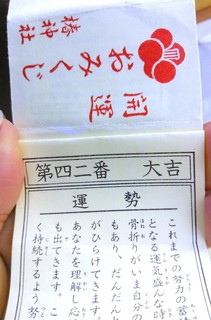 開運
おみくじ
椿神社
第四二番 大吉
運勢
これまでの努力の蓄
となる運気盛んな時
骨折りがいま自分の
もあり、だんだんと
がひらけてきます。
あなたを理解し応
も出てきます。こ
く持続するよう努